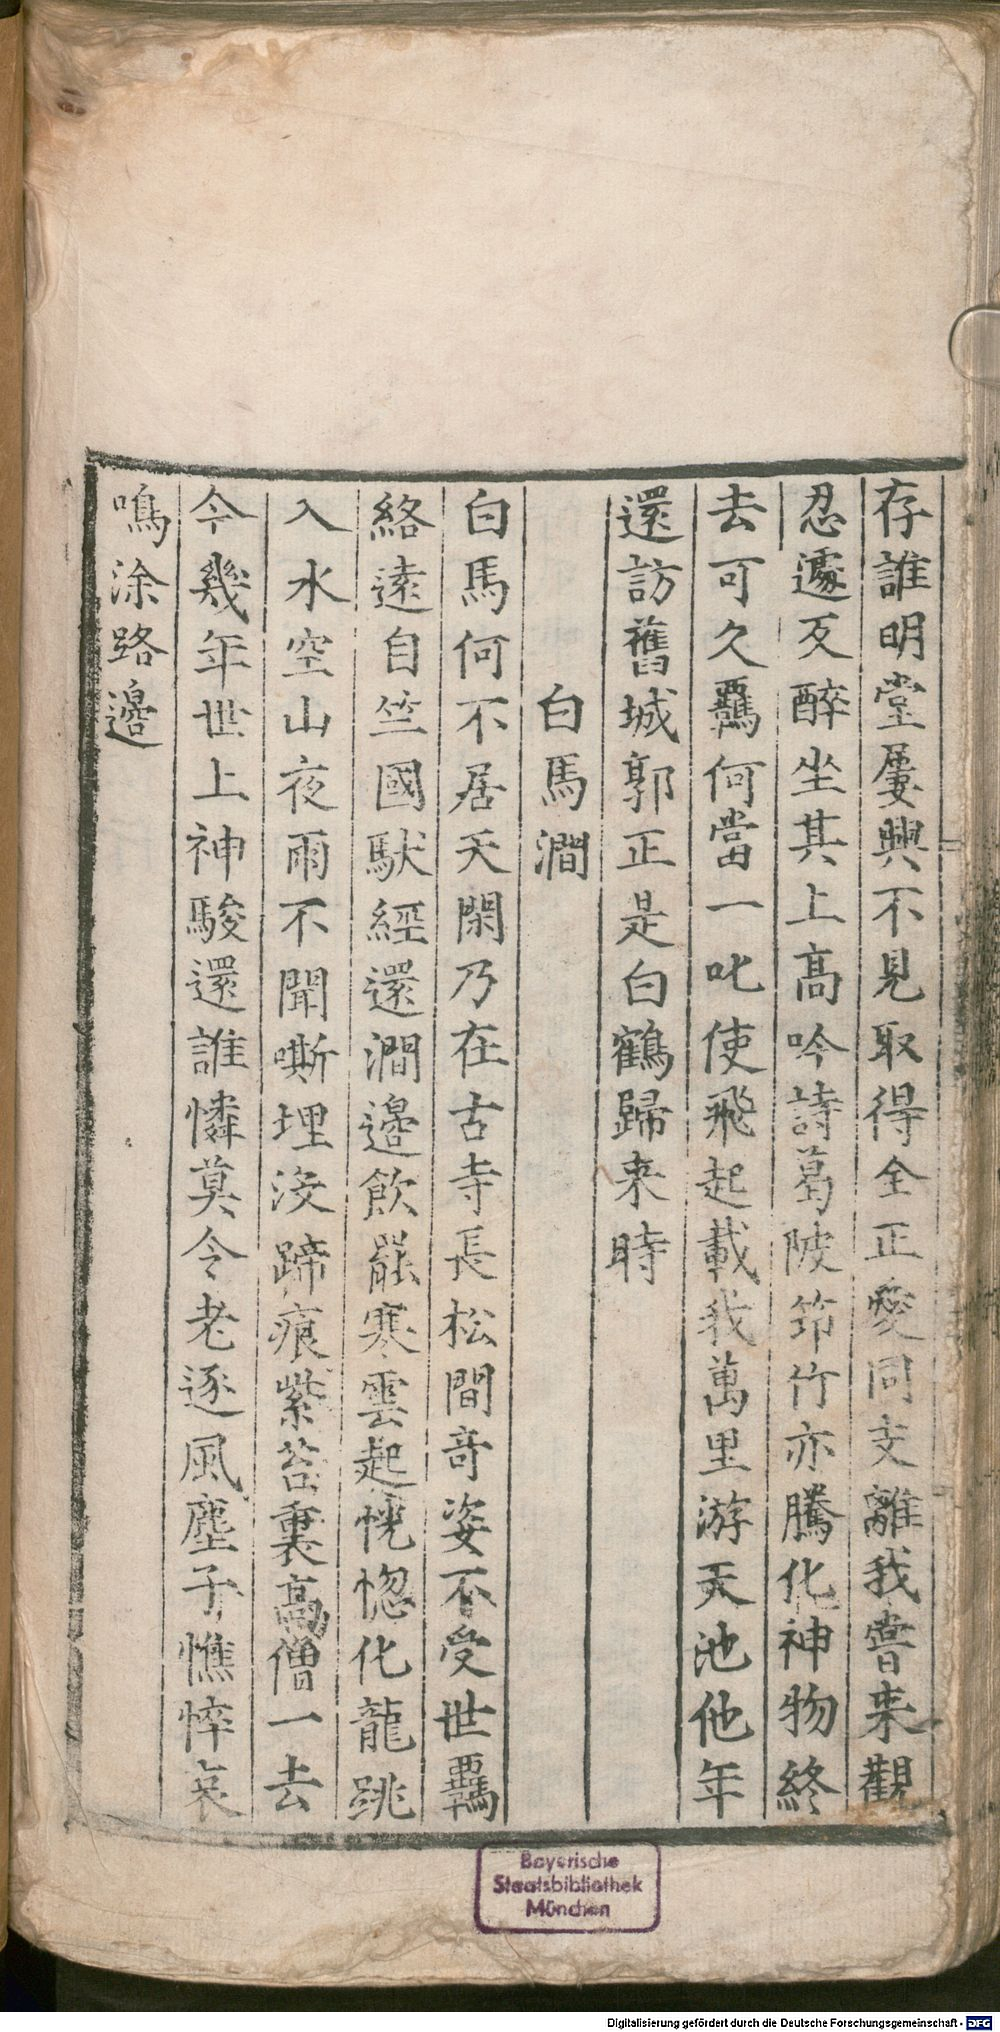 存誰明堂屢興不見取得全正愛同支離我嘗来觀
忍遽反醉坐其上高吟詩葛陂笻竹亦騰化神物終
去可久羈何當一叱使飛起載我萬里游天池他年
還訪舊城郭正是白鶴歸来時
白馬澗
白馬何不居天閑乃在古寺長松間竒姿不受世羈
絡遠自竺國馱經還澗邉飲罷寒雲起恍惚化龍跳
入水空山夜雨不聞嘶埋没蹄痕紫苔裏高僧一去
今幾年世上神駿還誰憐莫令老逐風塵子憔悴哀
鳴涂路邉
Bayerische
Staatsbibliothek
München
Digitalisierung gefördert durch die Deutsche Forschungsgemeinschaft - DFG